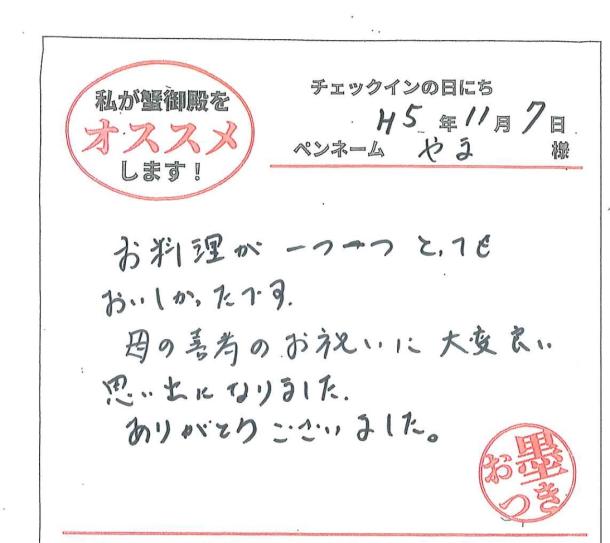 私が蟹御殿を
オススメ
します！
チェックインの日にち
H5年11月7日
ペンネーム やま 様
お料理が 一つ一つ とっても
おいしかったです.
母の喜寿のお祝いに 大変良い
思い出になりました.
ありがとうございました。
お墨つき